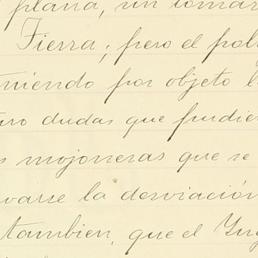 plana, un tomar
Tierra; pero el pol
niendo por objeto l
ro dudas que pudie
s mojoneras que se
varse la desviación
tambien, que el Ing